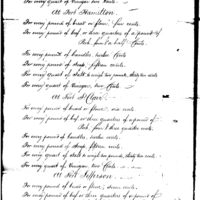 For every quart of Vinegar, ten Cents.
At Fort Hamilton.
For every pound of bread or flour, five cents.
For every pound of beef, or three quarters of a pound of
Pork, four & a half Cents.
For every pound of candles, twelve Cents.
For every pound of Soap, fifteen cents.
For every quart of Salt, weighing two pounds, thirty two cents
For every quart of Vinegar, ten Cents
At Fort St. Clair.
For every pound of bread or flour, six cents.
For every pound of beef, or three quarters of a pound of
Pork, four & three quarter cents.
For every pound of candles, twelve cents.
For every pound of Soap, fifteen cents.
For every quart of Salt, weighing two pounds, thirty two cents.
For every quart of Vinegar, ten Cents
At Fort Jefferson.
For every pound of bread or flour, seven cents.
For every pound of beef, or three quarters of a pound of